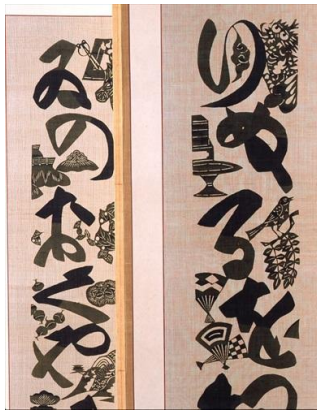 りぬるを
ゐのおくや